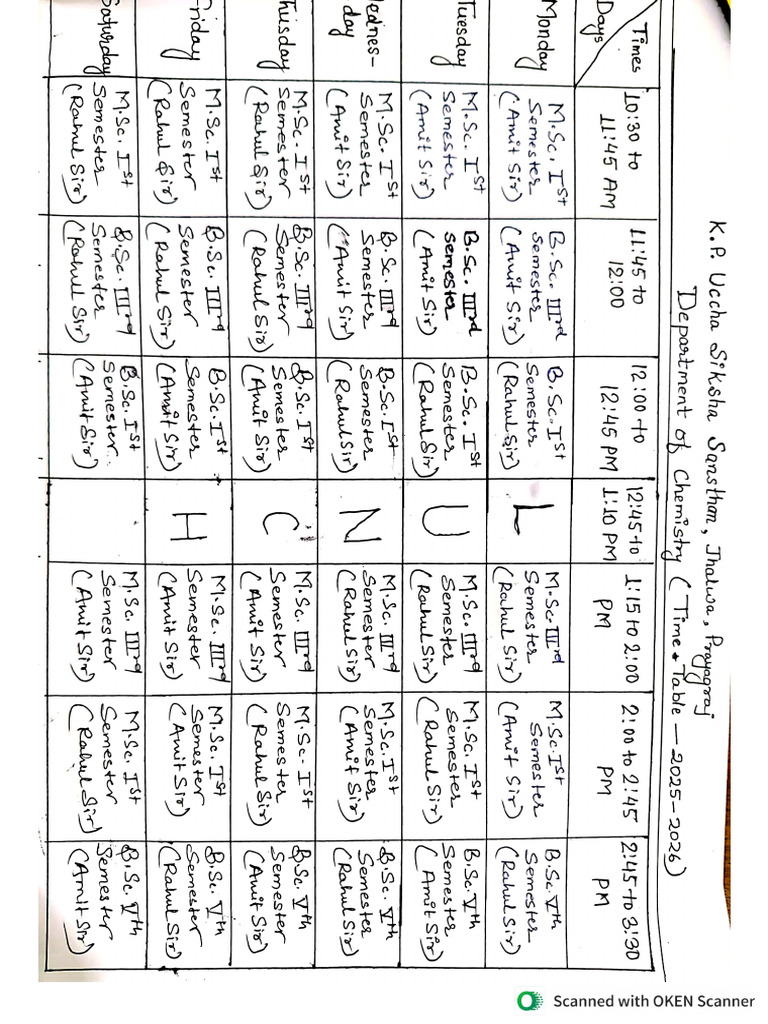 K.P. Uccha Siksha Sansthan, Jhalwa, Prayagraj
Department of Chemistry (Time Table - 2025-2026)
Times
Days
10:30 to
11:45 AM
11:45 to
12:00
12:00 to
12:45 PM
12:45 to
1:10 PM
1:15 to 2:00
PM
2:00 to 2:45
PM
2:45 to 3:30
PM
Monday
M.Sc. Ist
Semester
(Amit Sir)
B.Sc. IIIrd
Semester
(Amit Sir)
B.Sc. Ist
Semester
(Rahul Sir)
L
M.Sc IIIrd
Semester
(Rahul Sir)
M.Sc. Ist
Semester
(Amit Sir)
B.Sc. Vth
Semester
(Rahul Sir)
Tuesday
M.Sc. Ist
Semester
(Amit Sir)
B.Sc. IIIrd
Semester
(Amit Sir)
B.Sc. Ist
Semester
(Rahul Sir)
U
M.Sc. IIIrd
Semester
(Rahul Sir)
M.Sc. Ist
Semester
(Rahul Sir)
B.Sc. Vth
Semester
(Amit Sir)
Wednes-
day
M.Sc. Ist
Semester
(Amit Sir)
B.Sc. IIIrd
Semester
(Amit Sir)
B.Sc. Ist
Semester
(Rahul Sir)
N
M.Sc. IIIrd
Semester
(Rahul Sir)
M.Sc. Ist
Semester
(Amit Sir)
B.Sc. Vth
Semester
(Rahul Sir)
Thuisday
M.Sc. Ist
Semester
(Rahul Sir)
B.Sc. IIIrd
Semester
(Rahul Sir)
B.Sc. Ist
Semester
(Amit Sir)
C
M.Sc. IIIrd
Semester
(Amit Sir)
M.Sc. Ist
Semester
(Rahul Sir)
B.Sc. Vth
Semester
(Amit Sir)
Friday
M.Sc. Ist
Semester
(Rahul Sir)
B.Sc. IIIrd
Semester
(Rahul Sir)
B.Sc. Ist
Semester
(Amit Sir)
H
M.Sc. IIIrd
Semester
(Amit Sir)
M.Sc. Ist
Semester
(Amit Sir)
B.Sc. Vth
Semester
(Rahul Sir)
Saturday
M.Sc. Ist
Semester
(Rahul Sir)
B.Sc. IIIrd
Semester
(Rahul Sir)
B.Sc. Ist
Semester
(Amit Sir)
M.Sc. IIIrd
Semester
(Amit Sir)
M.Sc. Ist
Semester
(Rahul Sir)
B.Sc. Vth
Semester
(Amit Sir)
Scanned with OKEN Scanner